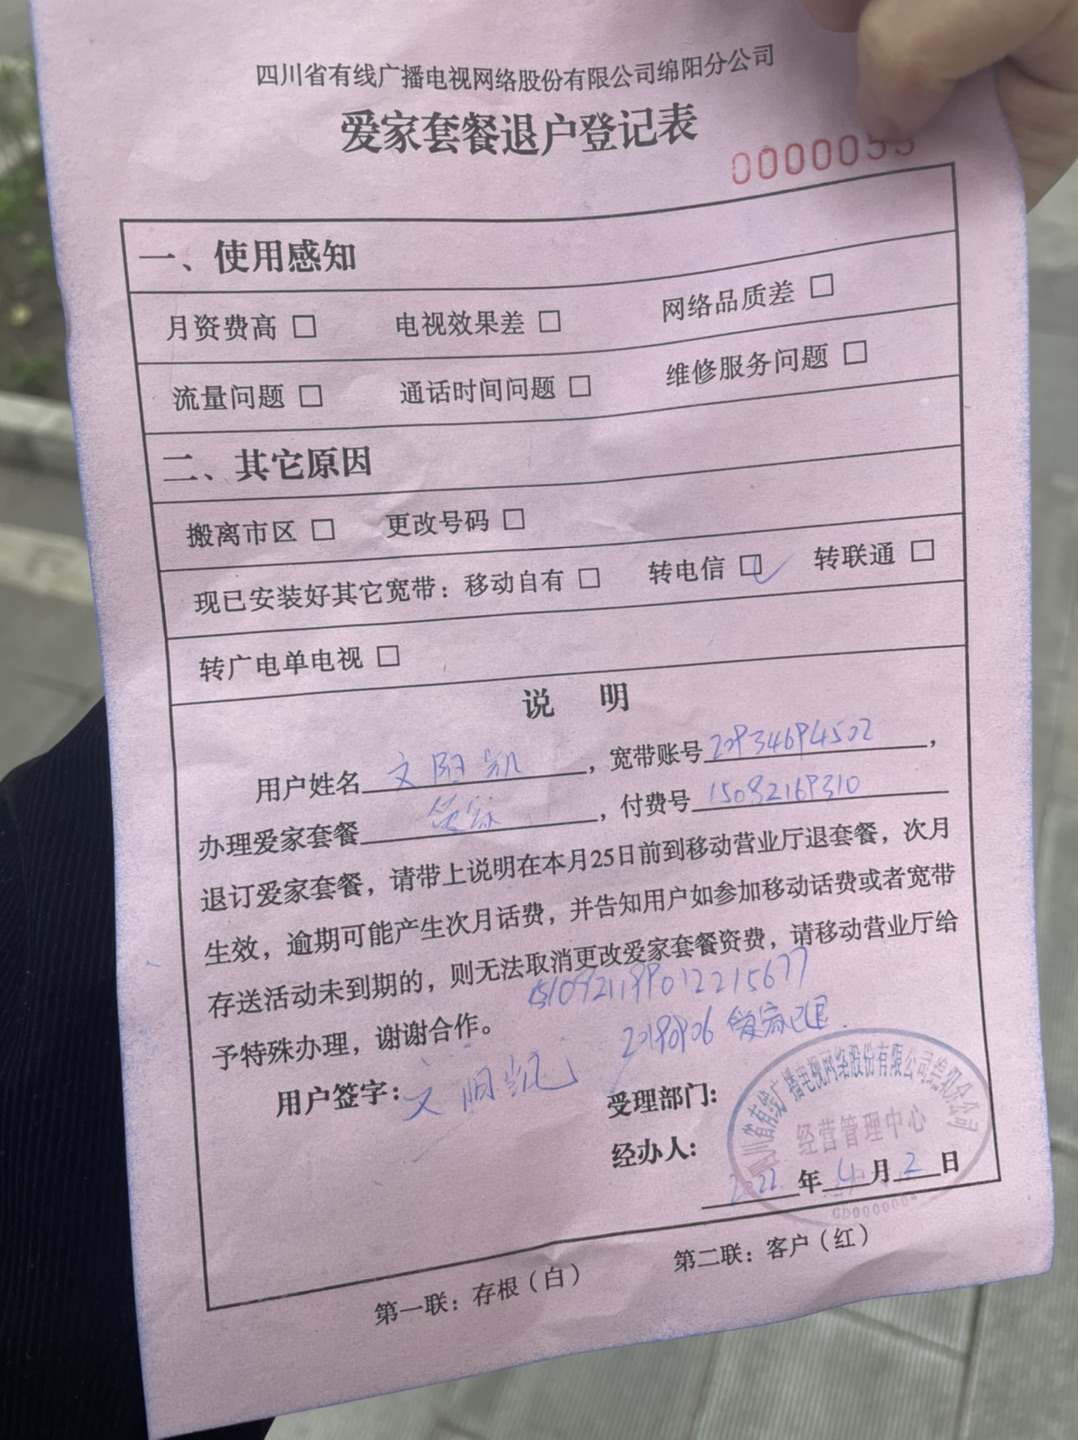 四川省有线广播电视网络股份有限公司绵阳分公司
爱家套餐退户登记表
0000055
一、使用感知
月资费高 □ 电视效果差 □ 网络品质差 □
流量问题 □ 通话时间问题 □ 维修服务问题 □
二、其它原因
搬离市区 □ 更改号码 □
现已安装好其它宽带：移动自有 □ 转电信 □✓ 转联通 □
转广电单电视 □
说 明
用户姓名 文阳凯，宽带账号 20934694502，
办理爱家套餐，付费号 15082169310
退订爱家套餐，请带上说明在本月25日前到移动营业厅退套餐，次月
生效，逾期可能产生次月话费，并告知用户如参加移动话费或者宽带
存送活动未到期的，则无法取消更改爱家套餐资费，请移动营业厅给
予特殊办理，谢谢合作。
爱家已退
用户签字：文阳凯 受理部门：
经办人：
2022年4月2日
四川省有线广播电视网络股份有限公司绵阳分公司
经营管理中心
第一联：存根（白） 第二联：客户（红）